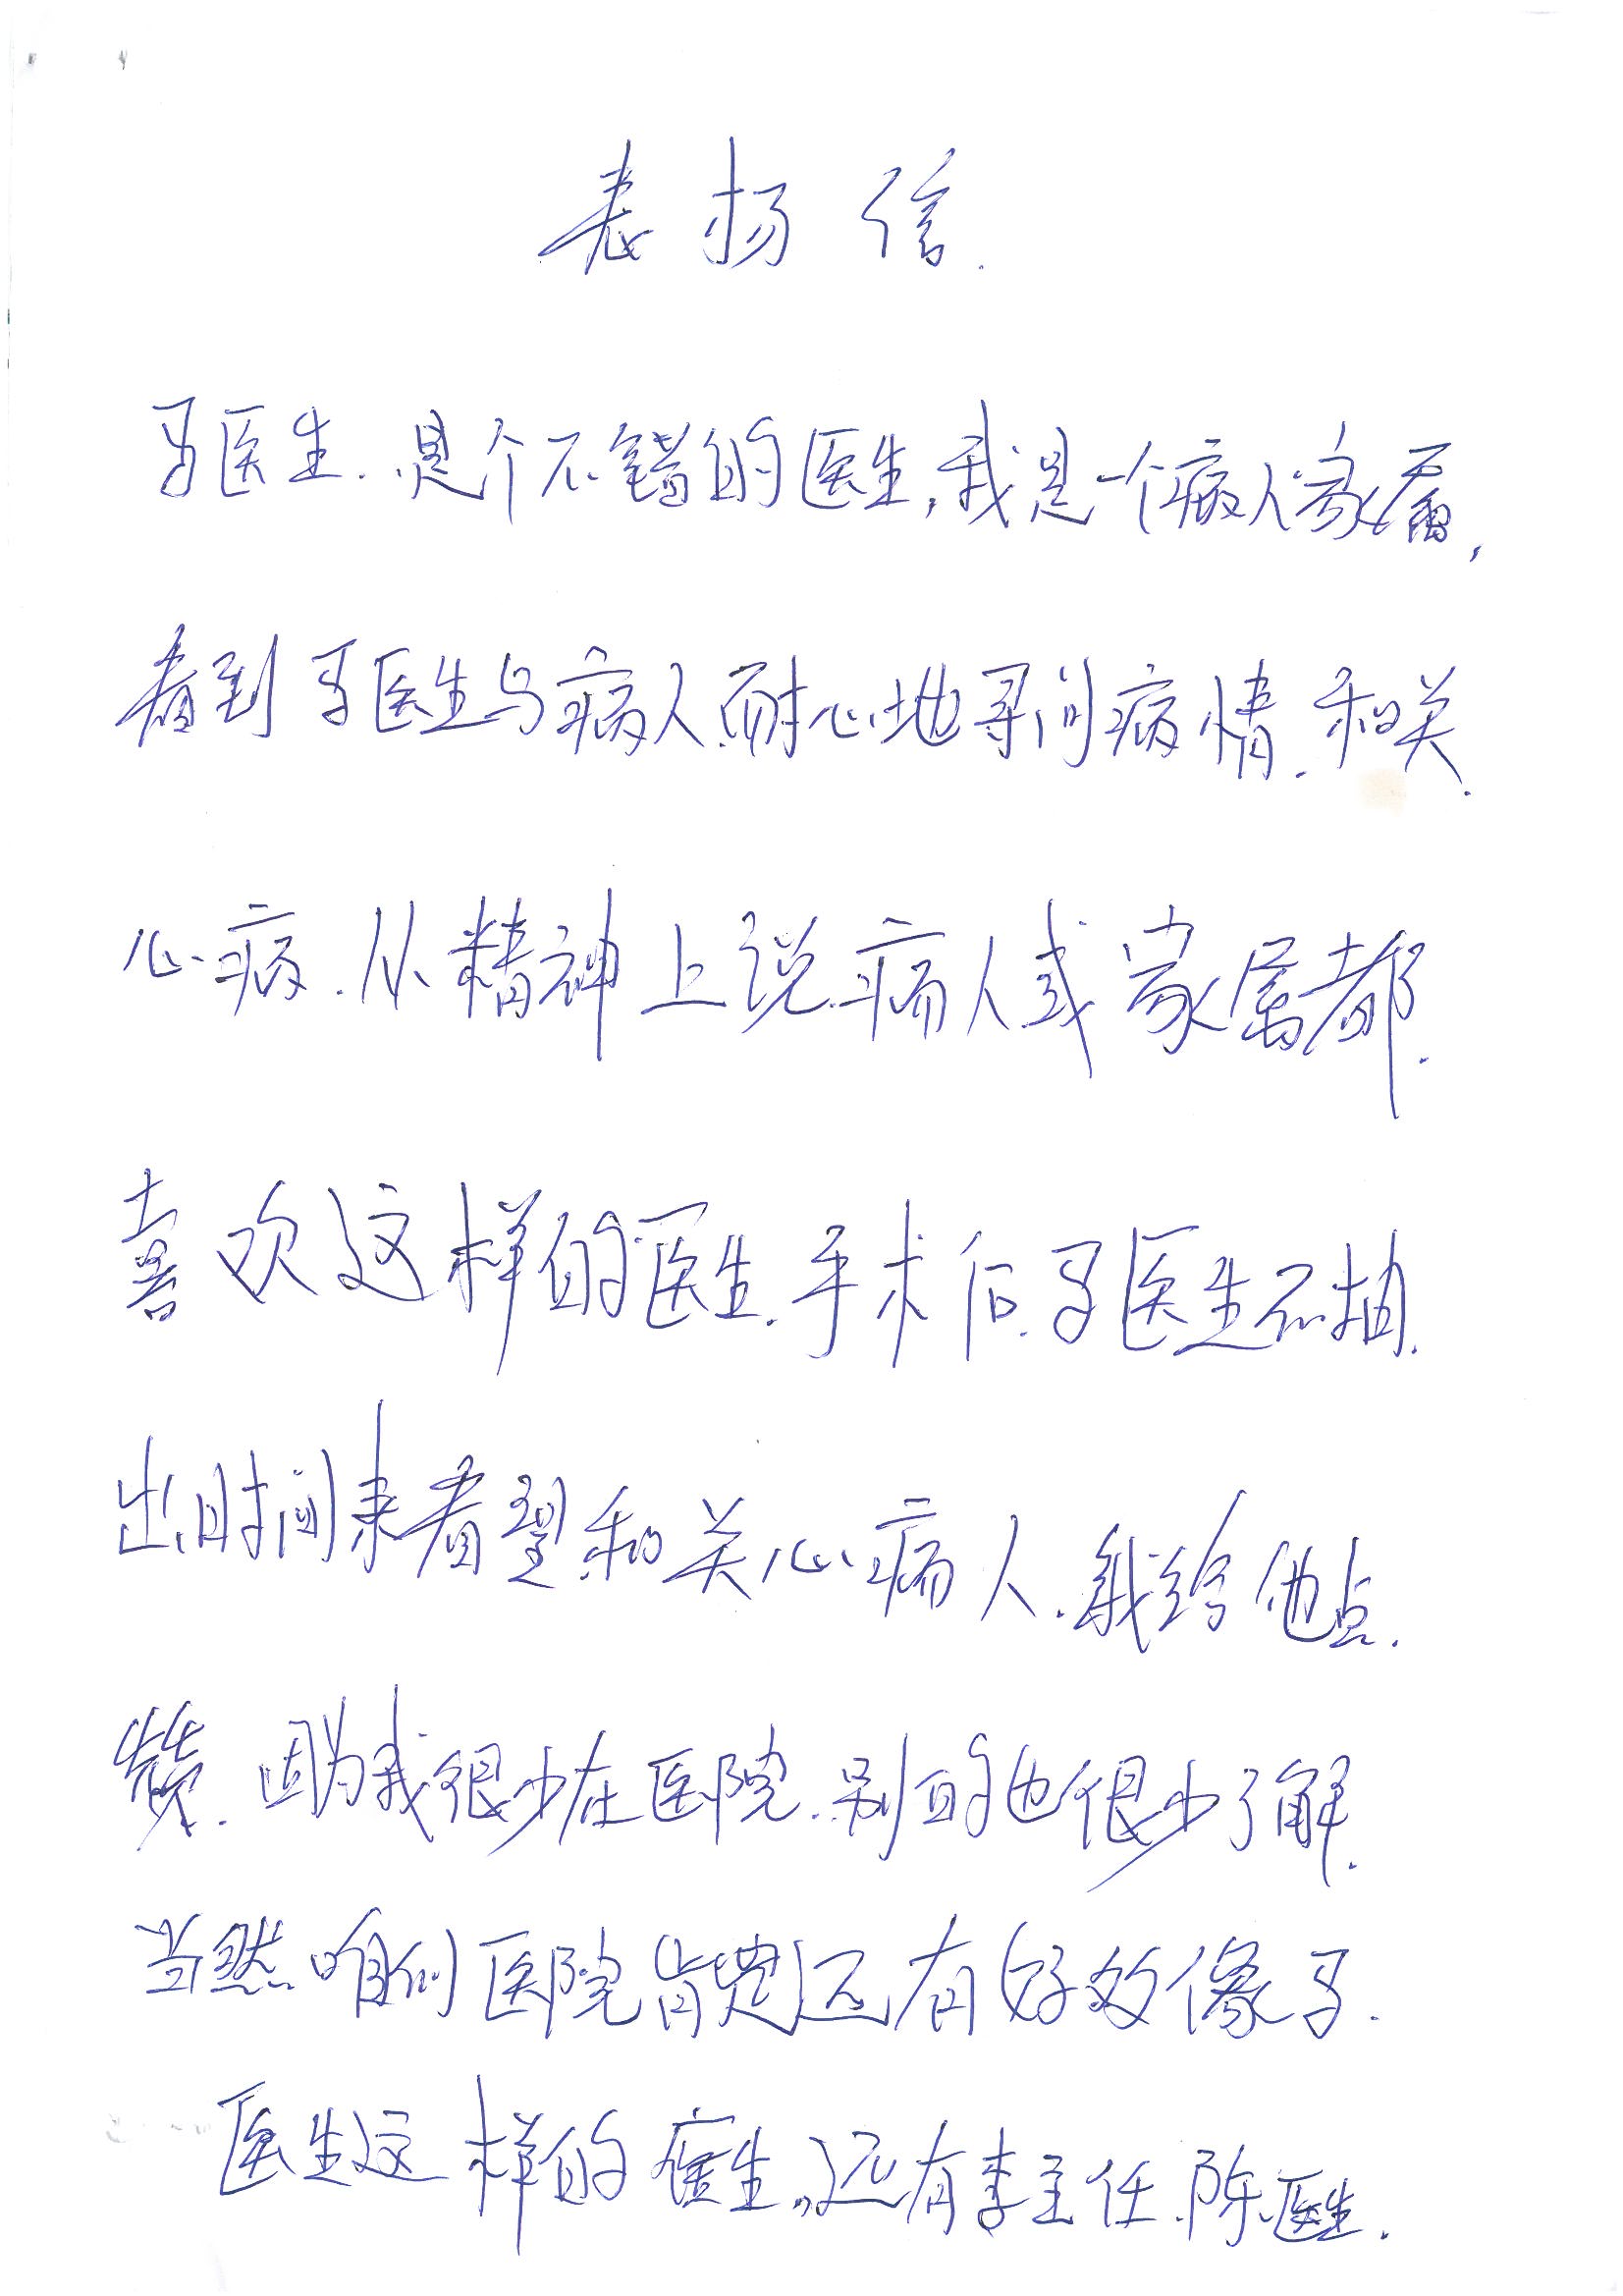 表扬信.
马医生.是个不错的医生,我是一个病人家属,
看到马医生与病人耐心地寻问病情.和关.
心病.从精神上说.病人或家属都.
喜欢这样的医生.手术后.马医生不抽.
出时间来看望和关心病人.我给他点.
赞.因为我很少在医院.别的也很少了解.
当然咱们医院肯定还有好多像马.
医生这样的医生.还有李主任.陈医生.